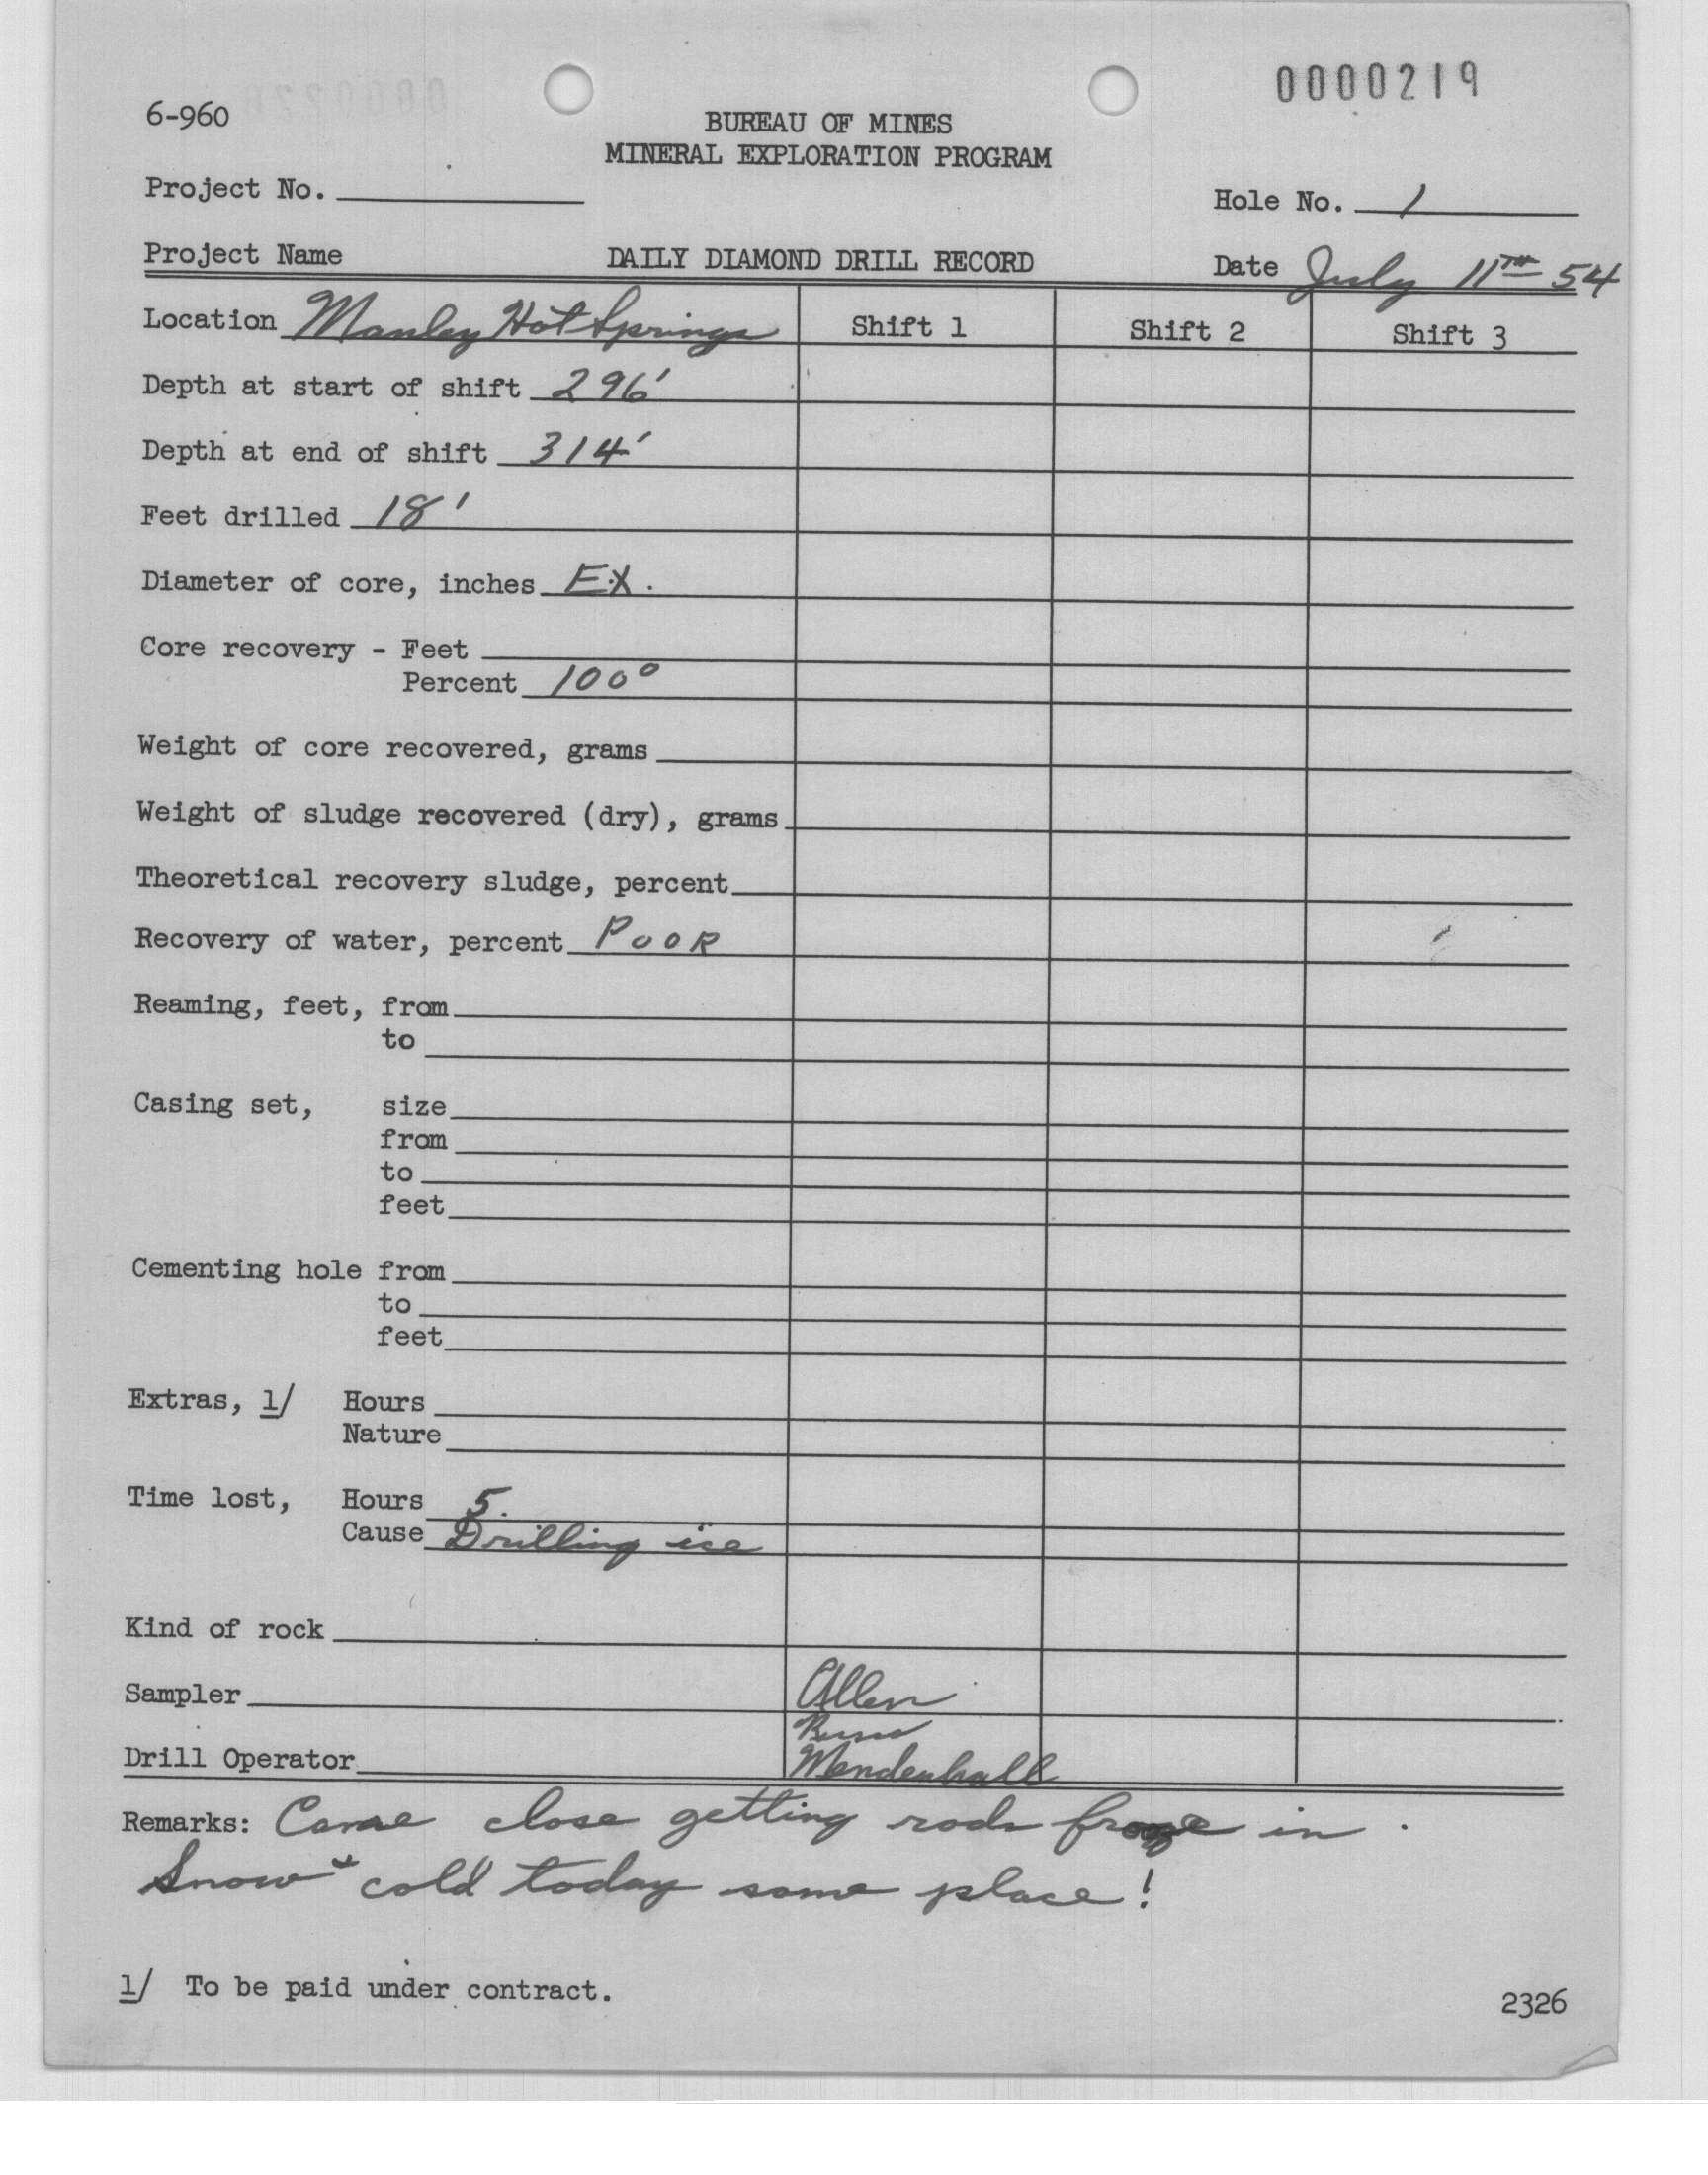 0000219
6-960
BUREAU OF MINES
MINERAL EXPLORATION PROGRAM
Project No.
Hole No. 1
Project Name DAILY DIAMOND DRILL RECORD Date July 11TH 54
Location Manley Hot Springs Shift 1 Shift 2 Shift 3
Depth at start of shift 296'
Depth at end of shift 314'
Feet drilled 18'
Diameter of core, inches EX.
Core recovery - Feet
Percent 100°
Weight of core recovered, grams
Weight of sludge recovered (dry), grams
Theoretical recovery sludge, percent
Recovery of water, percent POOR
Reaming, feet, from
to
Casing set, size
from
to
feet
Cementing hole from
to
feet
Extras, 1/ Hours
Nature
Time lost, Hours 5.
Cause Drilling ice
Kind of rock
Sampler Allen
Drill Operator Mendenhall
Remarks: Came close getting rods froze in.
Snow & cold today some place!
1/ To be paid under contract.
2326